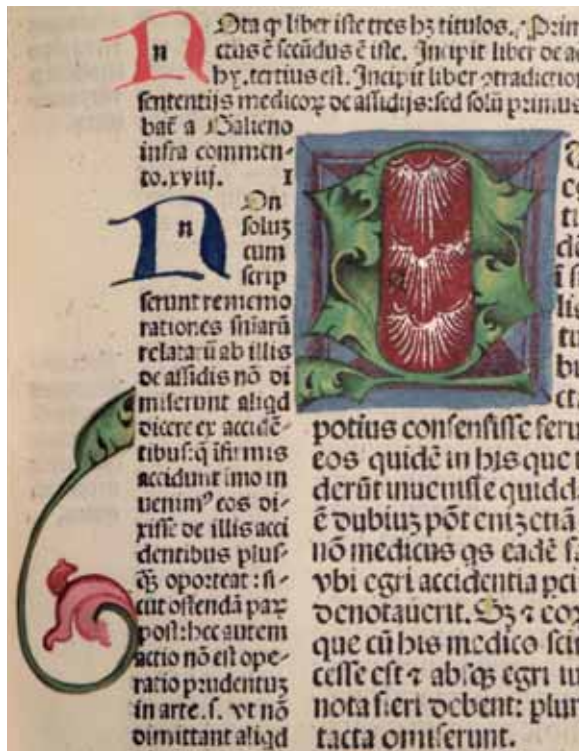 Nota ꝙ liber iste tres hꝫ titulos. Prim
ctus ē secūdus ē iste. Incipit liber de ac
hy. tertius est. Incipit liber ꝯtradictio
sententijs medicoꝝ de assidijs: sed solū primus
bat a Galieno
infra commen-
to. xviij. I
Non
soluꝫ
cum
scrip
serunt rememo
rationes sniarū
relatarū ab illis
de assidis nō di
miserunt aliqd
dicere ex accidē-
tibus: q̄ ifirmis
accidunt imo in
uenimꝰ eos di-
xisse de illis acci
dentibus plus-
ꝙ oporteat: si-
cut ostendā paꝝ
post: hec autem
actio nō est ope-
ratio prudentuꝫ
in arte. s. vt nō
dimittant aliqd
potius consensisse seru
eos quidē in his que i
derūt inuenisse quidd
ē dubiuꝫ pōt eniꝫ etiā
nō medicus qs eadē s
vbi egri accidentia pci
denotauerit. Sꝫ ⁊ eoꝝ
que cū his medico sci
cesse est ⁊ absqꝫ egri in
nota fieri debent: plur
tacta omiserunt.